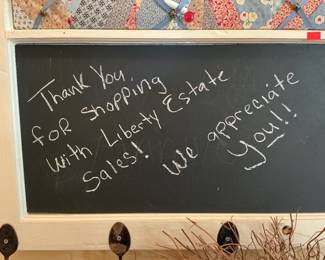 Thank You
for shopping
with Liberty Estate
Sales!
We appreciate
You!!